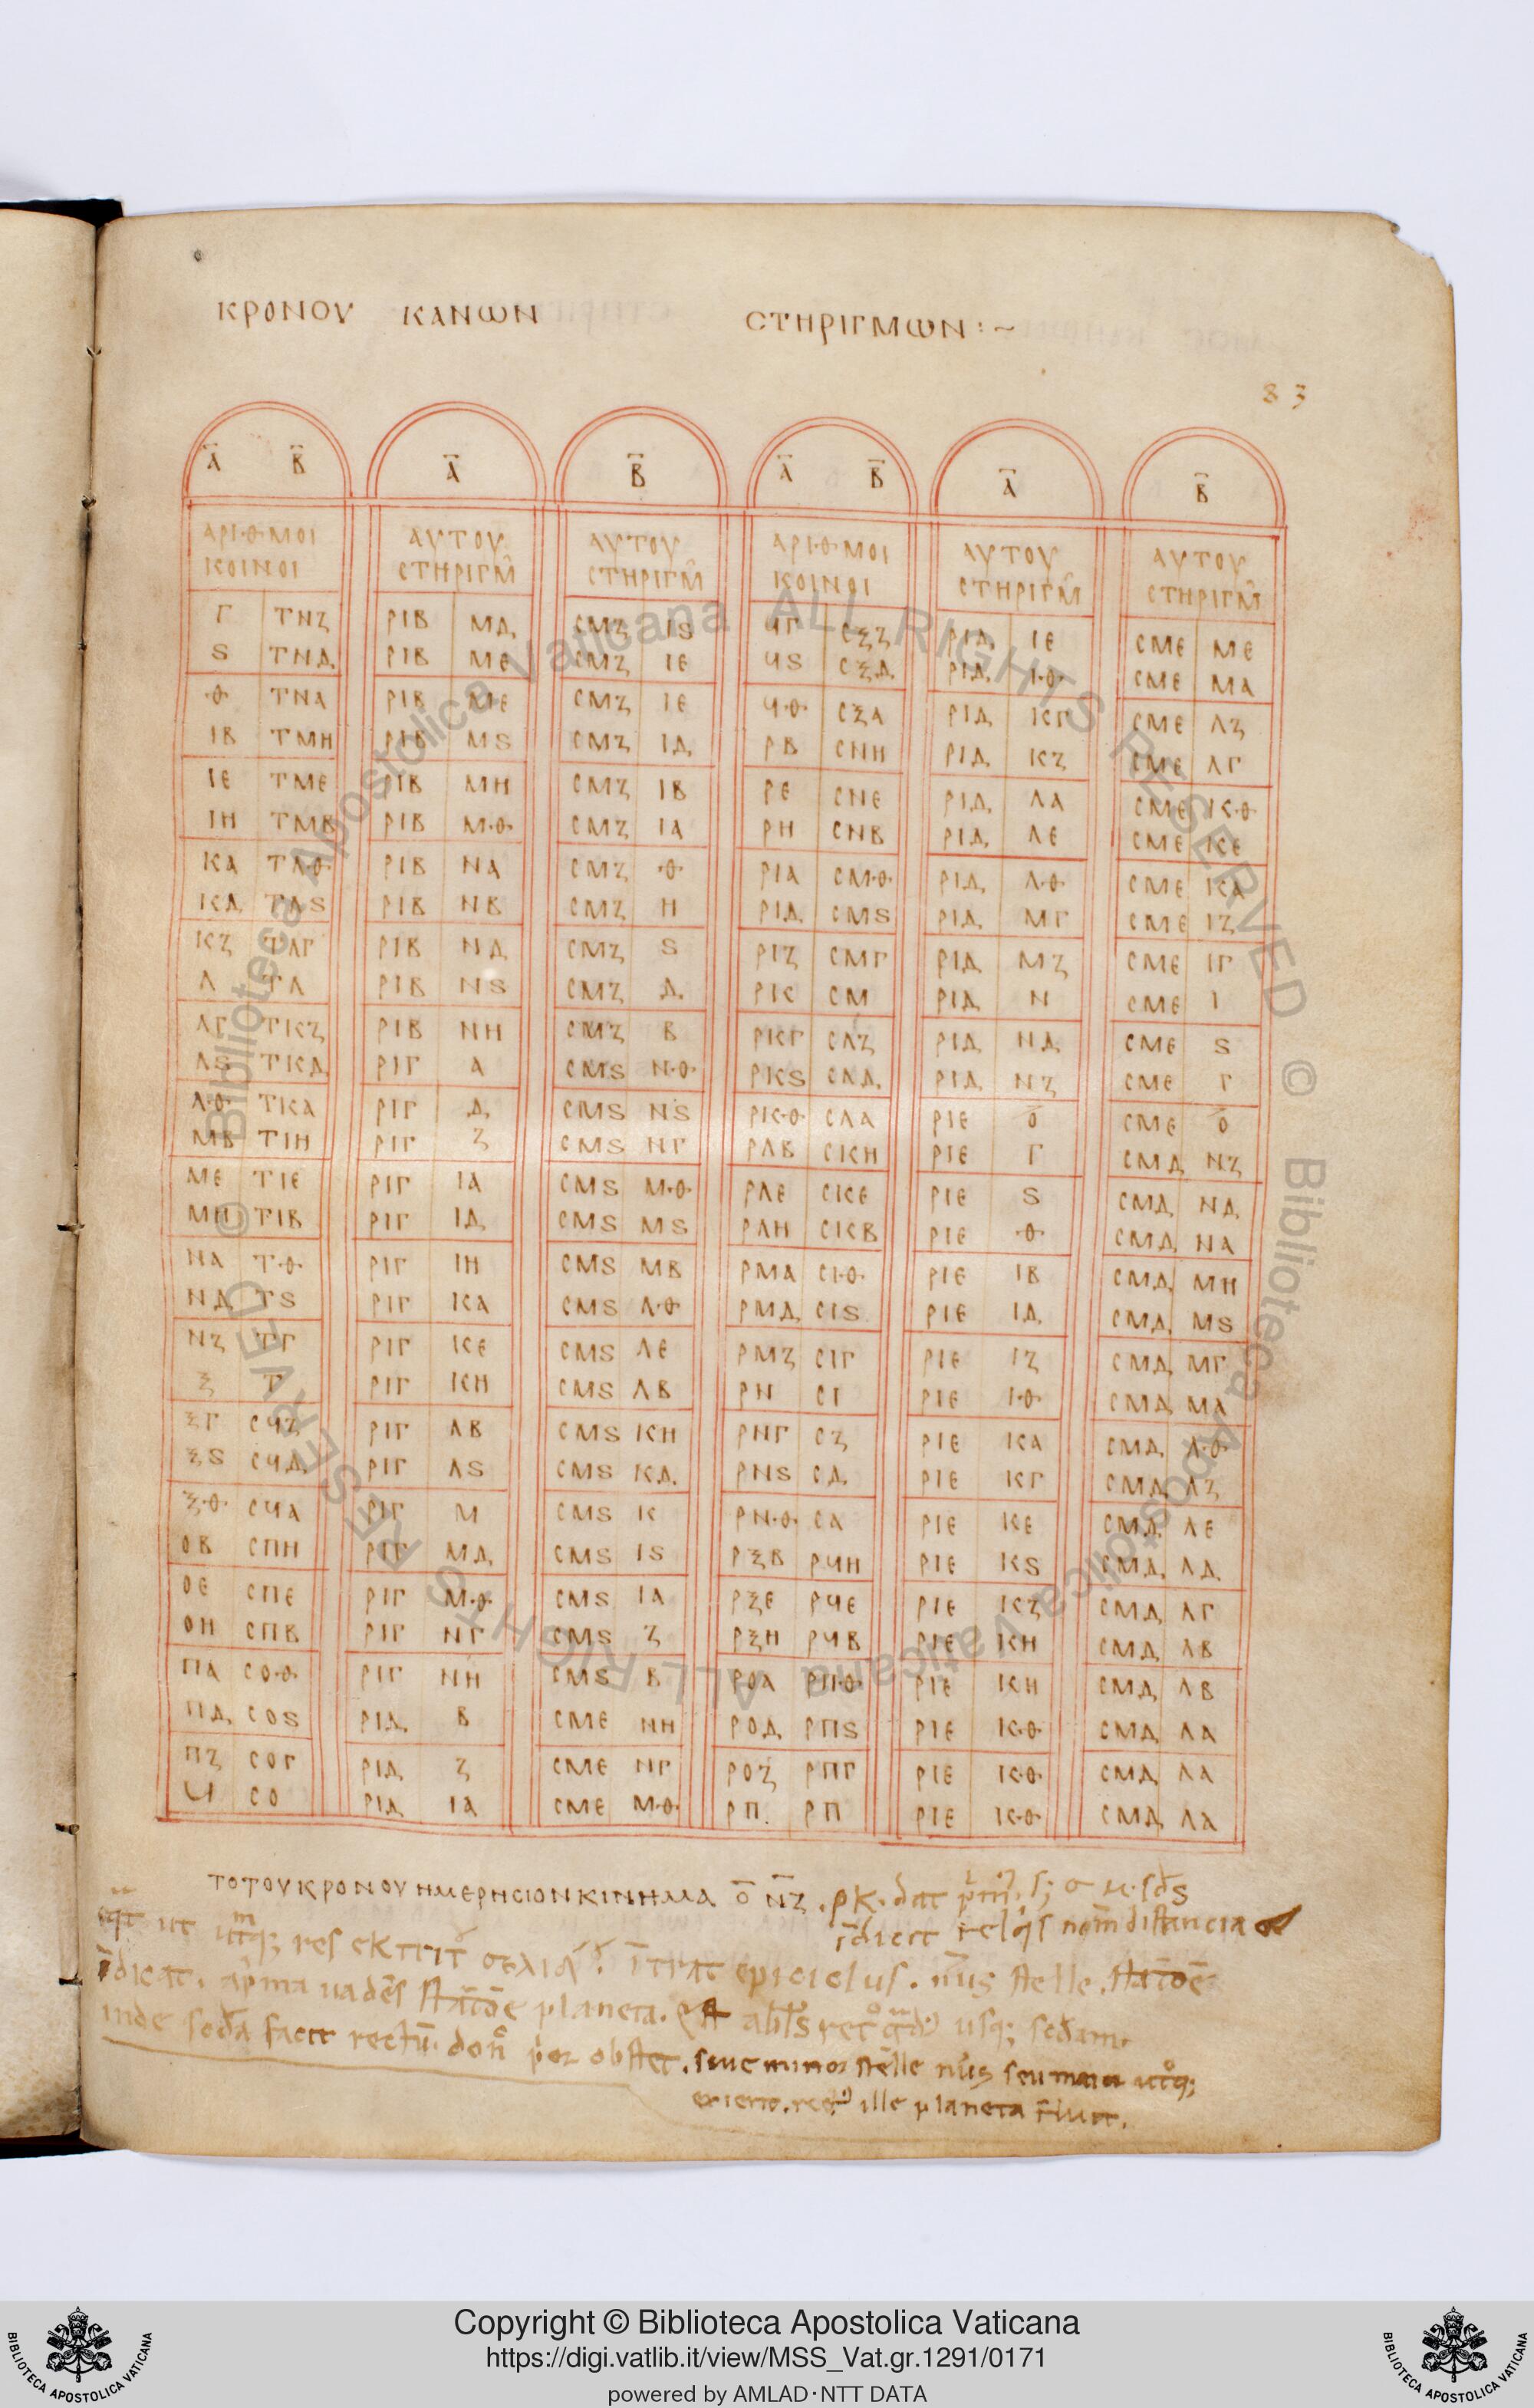 ΚΡΟΝΟΥ ΚΑΝΩΝ ΣΤΗΡΙΓΜΩΝ:~
83
Α Β Α Β Α Β Α Β
ΑΡΙΘΜΟΙ ΑΥΤΟΥ ΑΥΤΟΥ ΑΡΙΘΜΟΙ ΑΥΤΟΥ ΑΥΤΟΥ
ΚΟΙΝΟΙ ΣΤΗΡΙΓΜ ΣΤΗΡΙΓΜ ΚΟΙΝΟΙ ΣΤΗΡΙΓΜ ΣΤΗΡΙΓΜ
Γ ΤΝΖ ΡΙΒ ΜΔ ΣΜΖ ΙϚ ϞΓ ΣΞΖ ΡΙΔ ΙΕ ΣΜΕ ΜΕ
Ϛ ΤΝΔ ΡΙΒ ΜΕ ΣΜΖ ΙΕ ϞϚ ΣΞΔ ΡΙΔ ΙΘ ΣΜΕ ΜΑ
Θ ΤΝΑ ΡΙΒ ΜΕ ΣΜΖ ΙΕ ϞΘ ΣΞΑ ΡΙΔ ΚΓ ΣΜΕ ΛΖ
ΙΒ ΤΜΗ ΡΙΒ ΜϚ ΣΜΖ ΙΔ ΡΒ ΣΝΗ ΡΙΔ ΚΖ ΣΜΕ ΛΓ
ΙΕ ΤΜΕ ΡΙΒ ΜΗ ΣΜΖ ΙΒ ΡΕ ΣΝΕ ΡΙΔ ΛΑ ΣΜΕ ΚΘ
ΙΗ ΤΜΒ ΡΙΒ ΜΘ ΣΜΖ ΙΑ ΡΗ ΣΝΒ ΡΙΔ ΛΕ ΣΜΕ ΚΕ
ΚΑ ΤΛΘ ΡΙΒ ΝΑ ΣΜΖ Θ ΡΙΑ ΣΜΘ ΡΙΔ ΛΘ ΣΜΕ ΚΑ
ΚΔ ΤΛϚ ΡΙΒ ΝΒ ΣΜΖ Η ΡΙΔ ΣΜϚ ΡΙΔ ΜΓ ΣΜΕ ΙΖ
ΚΖ ΤΛΓ ΡΙΒ ΝΔ ΣΜΖ Ϛ ΡΙΖ ΣΜΓ ΡΙΔ ΜΖ ΣΜΕ ΙΓ
Λ ΤΛ ΡΙΒ ΝϚ ΣΜΖ Δ ΡΚ ΣΜ ΡΙΔ Ν ΣΜΕ Ι
ΛΓ ΤΚΖ ΡΙΒ ΝΗ ΣΜΖ Β ΡΚΓ ΣΛΖ ΡΙΔ ΝΔ ΣΜΕ Ϛ
ΛϚ ΤΚΔ ΡΙΓ Α ΣΜϚ ΝΘ ΡΚϚ ΣΛΔ ΡΙΔ ΝΖ ΣΜΕ Γ
ΛΘ ΤΚΑ ΡΙΓ Δ ΣΜϚ ΝϚ ΡΚΘ ΣΛΑ ΡΙΕ Ο ΣΜΕ Ο
ΜΒ ΤΙΗ ΡΙΓ Ζ ΣΜϚ ΝΓ ΡΛΒ ΣΚΗ ΡΙΕ Γ ΣΜΔ ΝΖ
ΜΕ ΤΙΕ ΡΙΓ ΙΑ ΣΜϚ ΜΘ ΡΛΕ ΣΚΕ ΡΙΕ Ϛ ΣΜΔ ΝΔ
ΜΗ ΤΙΒ ΡΙΓ ΙΔ ΣΜϚ ΜϚ ΡΛΗ ΣΚΒ ΡΙΕ Θ ΣΜΔ ΝΑ
ΝΑ ΤΘ ΡΙΓ ΙΗ ΣΜϚ ΜΒ ΡΜΑ ΣΙΘ ΡΙΕ ΙΒ ΣΜΔ ΜΗ
ΝΔ ΤϚ ΡΙΓ ΚΑ ΣΜϚ ΛΘ ΡΜΔ ΣΙϚ ΡΙΕ ΙΔ ΣΜΔ ΜϚ
ΝΖ ΤΓ ΡΙΓ ΚΕ ΣΜϚ ΛΕ ΡΜΖ ΣΙΓ ΡΙΕ ΙΖ ΣΜΔ ΜΓ
Ξ Τ ΡΙΓ ΚΗ ΣΜϚ ΛΒ ΡΝ ΣΙ ΡΙΕ ΙΘ ΣΜΔ ΜΑ
ΞΓ ΣϞΖ ΡΙΓ ΛΒ ΣΜϚ ΚΗ ΡΝΓ ΣΖ ΡΙΕ ΚΑ ΣΜΔ ΛΘ
ΞϚ ΣϞΔ ΡΙΓ ΛϚ ΣΜϚ ΚΔ ΡΝϚ ΣΔ ΡΙΕ ΚΓ ΣΜΔ ΛΖ
ΞΘ ΣϞΑ ΡΙΓ Μ ΣΜϚ Κ ΡΝΘ ΣΑ ΡΙΕ ΚΕ ΣΜΔ ΛΕ
ΟΒ ΣΠΗ ΡΙΓ ΜΔ ΣΜϚ ΙϚ ΡΞΒ ΡϞΗ ΡΙΕ ΚϚ ΣΜΔ ΛΔ
ΟΕ ΣΠΕ ΡΙΓ ΜΘ ΣΜϚ ΙΑ ΡΞΕ ΡϞΕ ΡΙΕ ΚΖ ΣΜΔ ΛΓ
ΟΗ ΣΠΒ ΡΙΓ ΝΓ ΣΜϚ Ζ ΡΞΗ ΡϞΒ ΡΙΕ ΚΗ ΣΜΔ ΛΒ
ΠΑ ΣΟΘ ΡΙΓ ΝΗ ΣΜϚ Β ΡΟΑ ΡΠΘ ΡΙΕ ΚΗ ΣΜΔ ΛΒ
ΠΔ ΣΟϚ ΡΙΔ Β ΣΜΕ ΝΗ ΡΟΔ ΡΠϚ ΡΙΕ ΚΘ ΣΜΔ ΛΑ
ΠΖ ΣΟΓ ΡΙΔ Ζ ΣΜΕ ΝΓ ΡΟΖ ΡΠΓ ΡΙΕ ΚΘ ΣΜΔ ΛΑ
Ϟ ΣΟ ΡΙΔ ΙΑ ΣΜΕ ΜΘ ΡΠ ΡΠ ΡΙΕ ΚΘ ΣΜΔ ΛΑ
ΤΟ ΤΟΥ ΚΡΟΝΟΥ ΗΜΕΡΗΣΙΟΝ ΚΙΝΗΜΑ Ο ΝΖ dat
distancia
epiciclus stelle
planeta
stelle seu
ille planeta
Copyright © Biblioteca Apostolica Vaticana
https://digi.vatlib.it/view/MSS_Vat.gr.1291/0171
powered by AMLAD·NTT DATA
BIBLIOTECA APOSTOLICA VATICANA
BIBLIOTECA APOSTOLICA VATICANA
© Biblioteca Apostolica Vaticana ALL RIGHTS RESERVED © Biblioteca Apostolica Vaticana ALL RIGHTS RESERVED